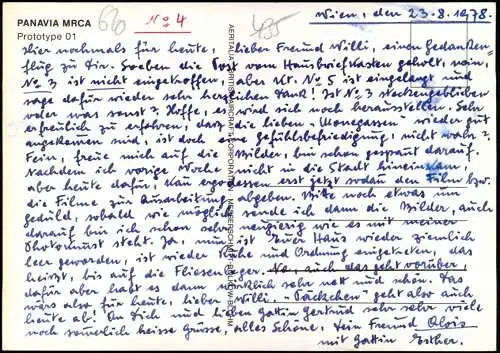 PANAVIA MRCA
Prototype 01
620
No 4
435
Wien, den 23.-8.1978.
Hier nochmals für heute, lieber Freund Willi, einen Gedanken-
flug zu Dir. Soeben die Post vom Hausbriefkasten geholt, nein,
No 3 ist nicht eingetroffen, aber Kt. No 5 ist eingelangt und
sage dafür wieder sehr herzlichen Dank! Ist No 3 steckengeblieben
oder was sonst? Hoffe, es wird sich noch herausstellen. Sehr
erfreulich zu erfahren, dass die lieben wieder gut
angekommen sind, ist doch eine gefühlsbefriedigung, nicht wahr?
Fein, freue mich auf die Bilder, bin schon gespannt darauf.
Nachdem ich vorige Woche nicht in die Stadt hineinkam,
aber heute dafür, kann ergo erst jetzt sodann den Film bzw.
die Filme zur Ausarbeitung abgeben. Bitte noch etwas um
geduld, sobald wie möglich sende ich dann die Bilder, auch
darauf bin ich schon sehr neugierig wie es mit meiner
Photokunst steht. Ja, nun ist Euer Haus wieder ziemlich
leer geworden, ist wieder Ruhe und Ordnung eingetreten, das
heisst, bis auf die Fliesenleger. Na, auch das geht vorüber,
dafür aber habt es dann wirklich sehr nett und schön. Das
wärs also für heute, lieber Willi. "Päckchen" geht also auch
heute ab! An Dich und lieben gattin gertrud sehr sehr viele
noch sommerlich heisse Grüsse, alles Schöne. Dein Freund Alois
mit gattin Esther.